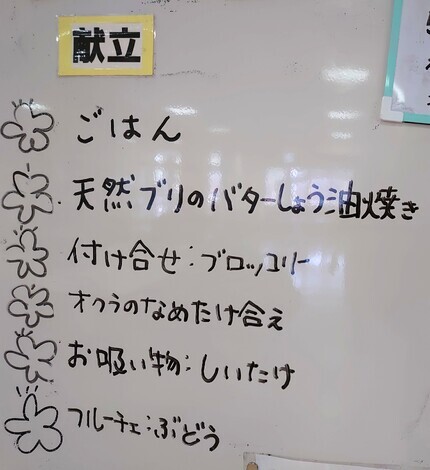 献立
ごはん
天然ブリのバターしょう油焼き
付け合せ:ブロッコリー
オクラのなめたけ合え
お吸い物:しいたけ
フルーチェ:ぶどう